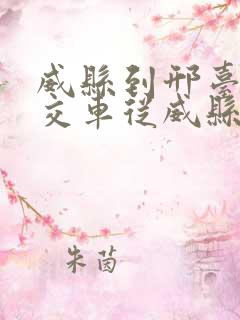 威縣到邢臺
交車從威縣
朱茵